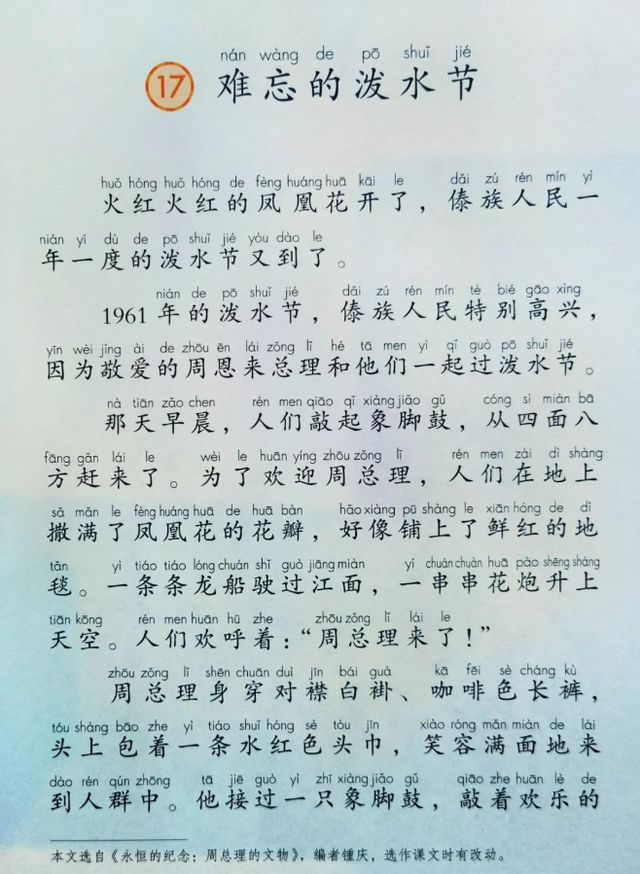 nán wàng de pō shuǐ jié
17 难忘的泼水节
huǒ hóng huǒ hóng de fèng huáng huā kāi le dǎi zú rén mín yì
火红火红的凤凰花开了，傣族人民一
nián yí dù de pō shuǐ jié yòu dào le
年一度的泼水节又到了。
nián de pō shuǐ jié dǎi zú rén mín tè bié gāo xìng
1961年的泼水节，傣族人民特别高兴，
yīn wèi jìng ài de zhōu ēn lái zǒng lǐ hé tā men yì qǐ guò pō shuǐ jié
因为敬爱的周恩来总理和他们一起过泼水节。
nà tiān zǎo chen rén men qiāo qǐ xiàng jiǎo gǔ cóng sì miàn bā
那天早晨，人们敲起象脚鼓，从四面八
fāng gǎn lái le wèi le huān yíng zhōu zǒng lǐ rén men zài dì shàng
方赶来了。为了欢迎周总理，人们在地上
sǎ mǎn le fèng huáng huā de huā bàn hǎo xiàng pū shàng le xiān hóng de dì
撒满了凤凰花的花瓣，好像铺上了鲜红的地
tǎn yì tiáo tiáo lóng chuán shǐ guò jiāng miàn yí chuàn chuàn huā pào shēng shàng
毯。一条条龙船驶过江面，一串串花炮升上
tiān kōng rén men huān hū zhe zhōu zǒng lǐ lái le
天空。人们欢呼着：“周总理来了！”
zhōu zǒng lǐ shēn chuān duì jīn bái guà kā fēi sè cháng kù
周总理身穿对襟白褂、咖啡色长裤，
tóu shàng bāo zhe yì tiáo shuǐ hóng sè tóu jīn xiào róng mǎn miàn de lái
头上包着一条水红色头巾，笑容满面地来
dào rén qún zhōng tā jiē guò yì zhī xiàng jiǎo gǔ qiāo zhe huān lè de
到人群中。他接过一只象脚鼓，敲着欢乐的
本文选自《永恒的纪念：周总理的文物》，编者锺庆，选作课文时有改动。